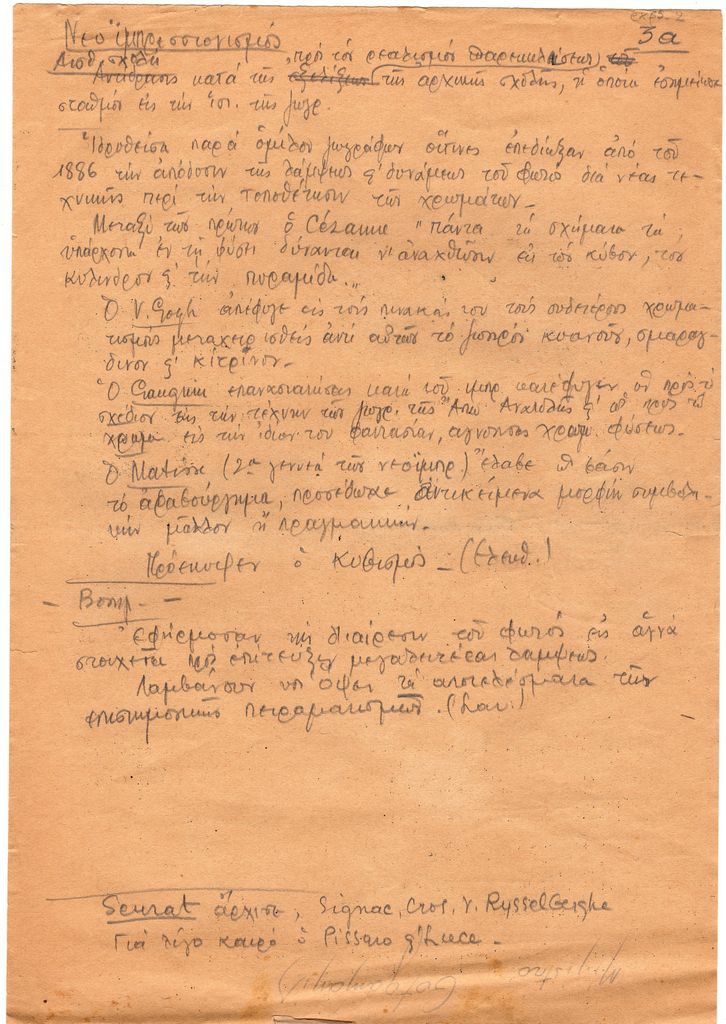 Νεοϊμπρεσσιονισμός
3α
Αισθ. σχολή
πρός τόν ρεαλισμόν
Αντίδρασις κατά της της αρχικής σχολής, η οποία εσημείωσε
σταθμόν εις την ιστ. της ζωγρ.
Ιδρυθείσα παρά ομίλου ζωγράφων οίτινες επεδίωξαν από του
1886 την απόδοσιν της λάμψεως & δυνάμεως του φωτός διά νέας τε-
χνικής περί την τοποθέτησιν των χρωμάτων.
Μεταξύ των πρώτων ο Cézanne "Πάντα τα σχήματα τα
υπάρχοντα εν τη φύσει δύνανται ν' αναχθώσιν εις τον κύβον, τον
κύλινδρον & την πυραμίδα."
Ο V. Gogh απέφυγε εις τους πίνακάς του τους ουδετέρους χρωμα-
τισμούς μεταχειρισθείς αντί αυτών το ζωηρόν κυανούν, σμαράγ-
δινον & κίτρινον.
Ο Gauguin επαναστατήσας κατά του ιμπρ. κατέφυγεν ως πρός το
σχέδιον εις την τέχνην των ζωγρ. της Άπω Ανατολής & ως προς το
χρώμα εις την ιδίαν του φαντασίαν, αγνοήσας χρώμ. φύσεως.
Ο Matisse (2α γενεά των νεοϊμπρ.) έλαβε ως βάσιν
το αραβούργημα, προσέδωκε αντικείμενα μορφήν συμβολι-
κήν μάλλον ή πραγματικήν.
Προέκυψεν ο κυβισμός - (Ελευθ.)
Εφήρμοσαν την διαίρεσιν του φωτός εις αγνά
στοιχεία προς επίτευξιν μεγαλειτέρας λάμψεως.
Λαμβάνουν υπ' όψει τα αποτελέσματα των
επιστημονικών πειραματισμών.
Seurat άρχισε, Signac, Cros, V. Rysselberghe
Για λίγο καιρό ο Pissaro & Luce -